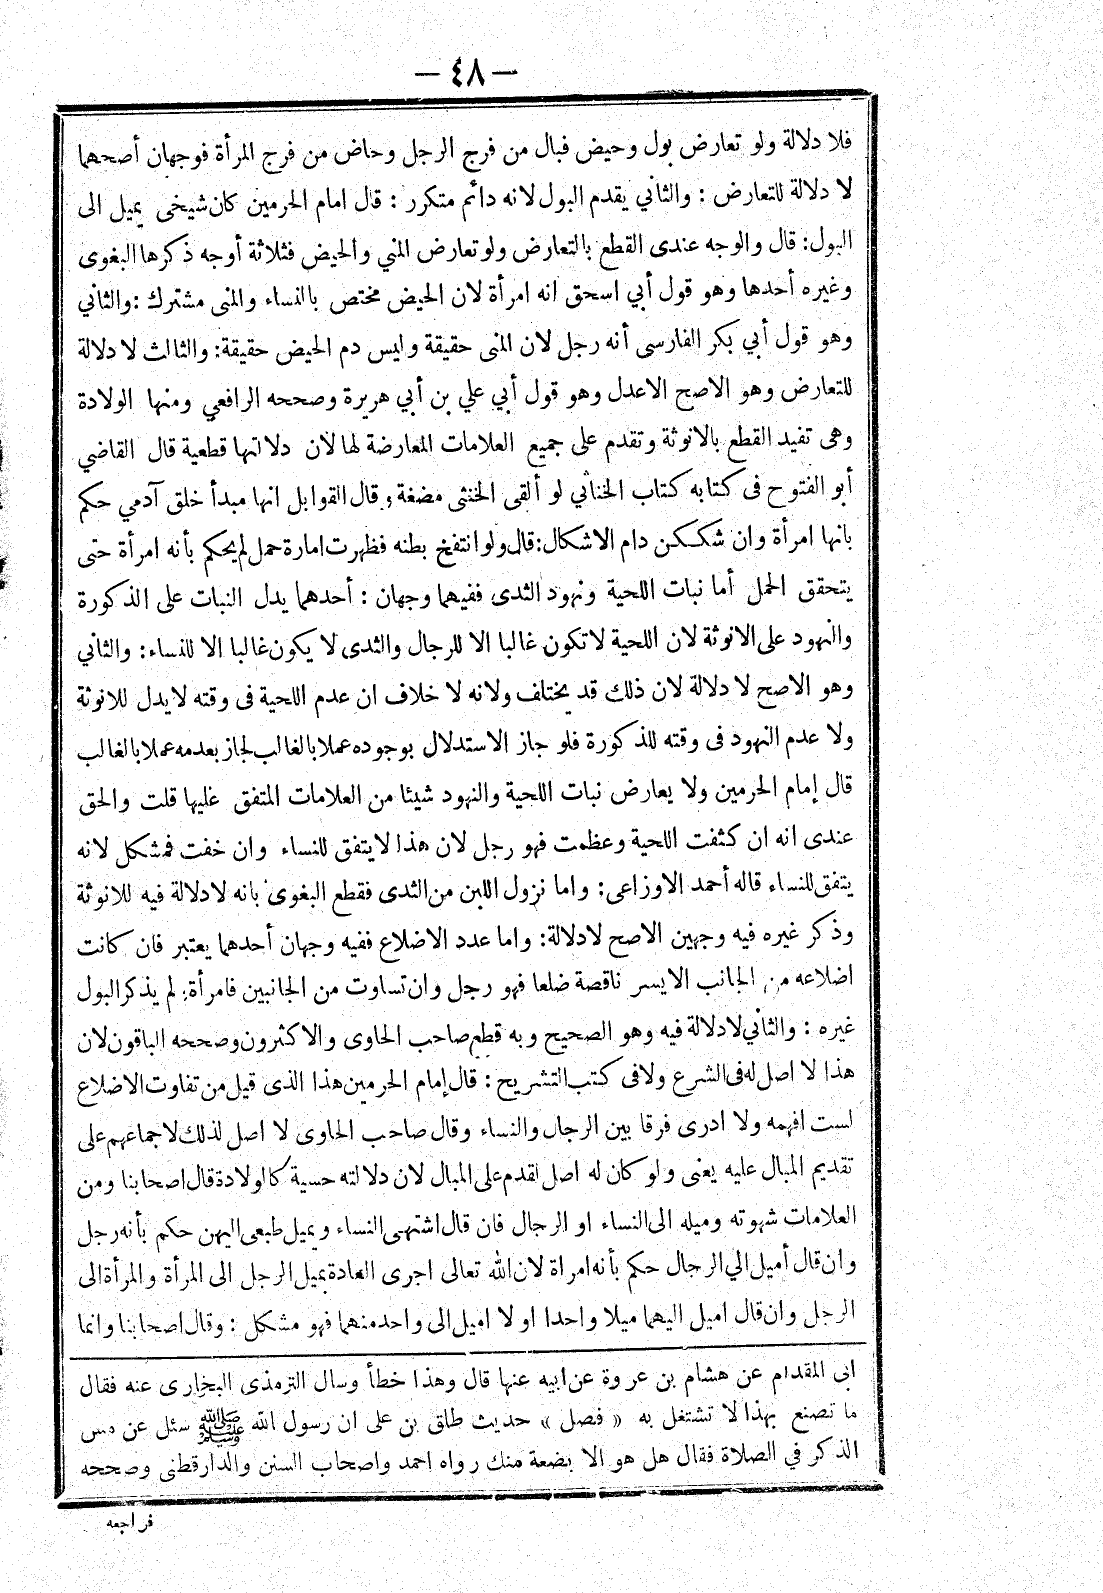 — ٤٨ —
فلا دلالة ولو تعارض بول وحيض فبال من فرج الرجل وحاض من فرج المرأة فوجهان أصحهما
لا دلالة للتعارض : والثاني يقدم البول لانه دائم متكرر : قال امام الحرمين كان شيخى يميل الى
البول : قال والوجه عندى القطع بالتعارض ولو تعارض المني والحيض فثلاثة أوجه ذكرها البغوى
وغيره أحدها وهو قول أبي اسحق انه امرأة لان الحيض مختص بالنساء والمنى مشترك : والثاني
وهو قول أبي بكر الفارسى أنه رجل لان المنى حقيقة وليس دم الحيض حقيقة : والثالث لا دلالة
للتعارض وهو الاصح الاعدل وهو قول أبي علي بن أبي هريرة وصححه الرافعي ومنها الولادة
وهى تفيد القطع بالانوثة وتقدم على جميع العلامات المعارضة لها لان دلالتها قطعية قال القاضي
أبو الفتوح فى كتابه كتاب الخناثي لو ألقى الخنثى مضغة وقال القوابل انها مبدأ خلق آدمي حكم
بانها امرأة وان شككن دام الاشكال : قال ولو انتفخ بطنه فظهرت امارة حمل لم يحكم بأنه امرأة حتى
يتحقق الحمل أما نبات اللحية ونهود الثدى ففيهما وجهان : أحدهما يدل النبات على الذكورة
والنهود على الانوثة لان اللحية لا تكون غالبا الا للرجال والثدى لا يكون غالبا الا للنساء : والثاني
وهو الاصح لا دلالة لان ذلك قد يختلف ولانه لا خلاف ان عدم اللحية فى وقته لا يدل للانوثة
ولا عدم النهود فى وقته للذكورة فلو جاز الاستدلال بوجوده عملا بالغالب لجاز بعدمه عملا بالغالب
قال إمام الحرمين ولا يعارض نبات اللحية والنهود شيئا من العلامات المتفق غليها قلت والحق
عندى انه ان كثفت اللحية وعظمت فهو رجل لان هذا لا يتفق للنساء وان خفت فمشكل لانه
يتفق للنساء قاله أحمد الاوزاعى : واما نزول اللبن من الثدى فقطع البغوى بانه لا دلالة فيه للانوثة
وذكر غيره فيه وجهين الاصح لا دلالة : واما عدد الاضلاع ففيه وجهان أحدهما يعتبر فان كانت
اضلاعه من الجانب الايسر ناقصة ضلعا فهو رجل وان تساوت من الجانبين فامرأة لم يذكر البول
غيره : والثاني لا دلالة فيه وهو الصحيح وبه قطع صاحب الحاوى والاكثرون وصححه الباقون لان
هذا لا اصل له فى الشرع ولا فى كتب التشريح : قال إمام الحرمين هذا الذى قيل من تفاوت الاضلاع
لست افهمه ولا ادرى فرقا بين الرجال والنساء وقال صاحب الحاوى لا اصل لذلك لاجماعهم على
تقديم المبال عليه يعنى ولو كان له اصل لقدم على المبال لان دلالته حسية كالولادة قال اصحابنا ومن
العلامات شهوته وميله الى النساء او الرجال فان قال اشتهى النساء ويميل طبعى اليهن حكم بأنه رجل
وان قال أميل الي الرجال حكم بأنه امراة لان الله تعالى اجرى العادة بميل الرجل الى المرأة والمرأة الى
الرجل وان قال اميل اليهما ميلا واحدا او لا اميل الى واحد منهما فهو مشكل : وقال اصحابنا وانما
ابى المقدام عن هشام بن عروة عن ابيه عنها قال وهذا خطأ وسال الترمذى البخارى عنه فقال
ما تصنع بهذا لا تشتغل به « فصل » حديث طلق بن على ان رسول الله ﷺ سئل عن مس
الذكر في الصلاة فقال هل هو الا بضعة منك رواه احمد واصحاب السنن والدارقطنى وصححه
فراجعه